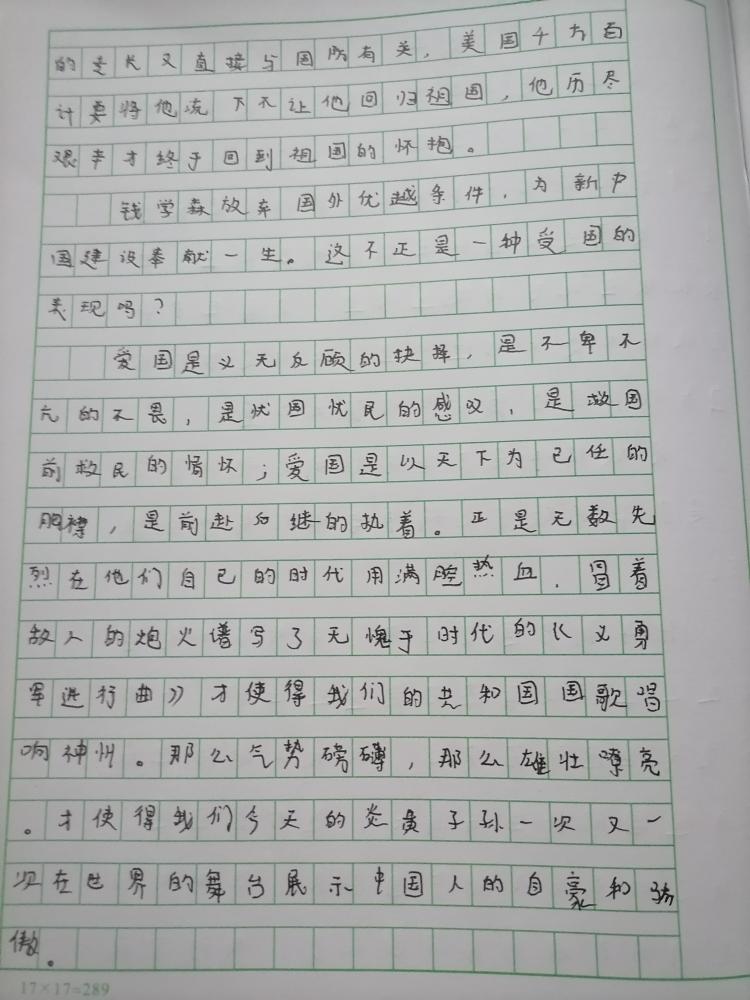 的专长又直接与国防有关，美国千方百
计要将他流下不让他回归祖国，他历尽
艰辛才终于回到祖国的怀抱。
钱学森放弃国外优越条件，为新中
国建设奉献一生。这不正是一种受国的
表现吗？
爱国是义无反顾的抉择，是不卑不
亢的不畏，是忧国忧民的感叹，是救国
前救民的情怀；爱国是以天下为己任的
胸襟，是前赴后继的执着。正是无数先
烈在他们自己的时代用满腔热血，冒着
敌人的炮火谱写了无愧于时代的《义勇
军进行曲》才使得我们的共和国国歌唱
响神州。那么气势磅礴，那么雄壮嘹亮
。才使得我们今天的炎黄子孙一次又一
次在世界的舞台展示中国人的自豪和骄
傲。
17×17=289